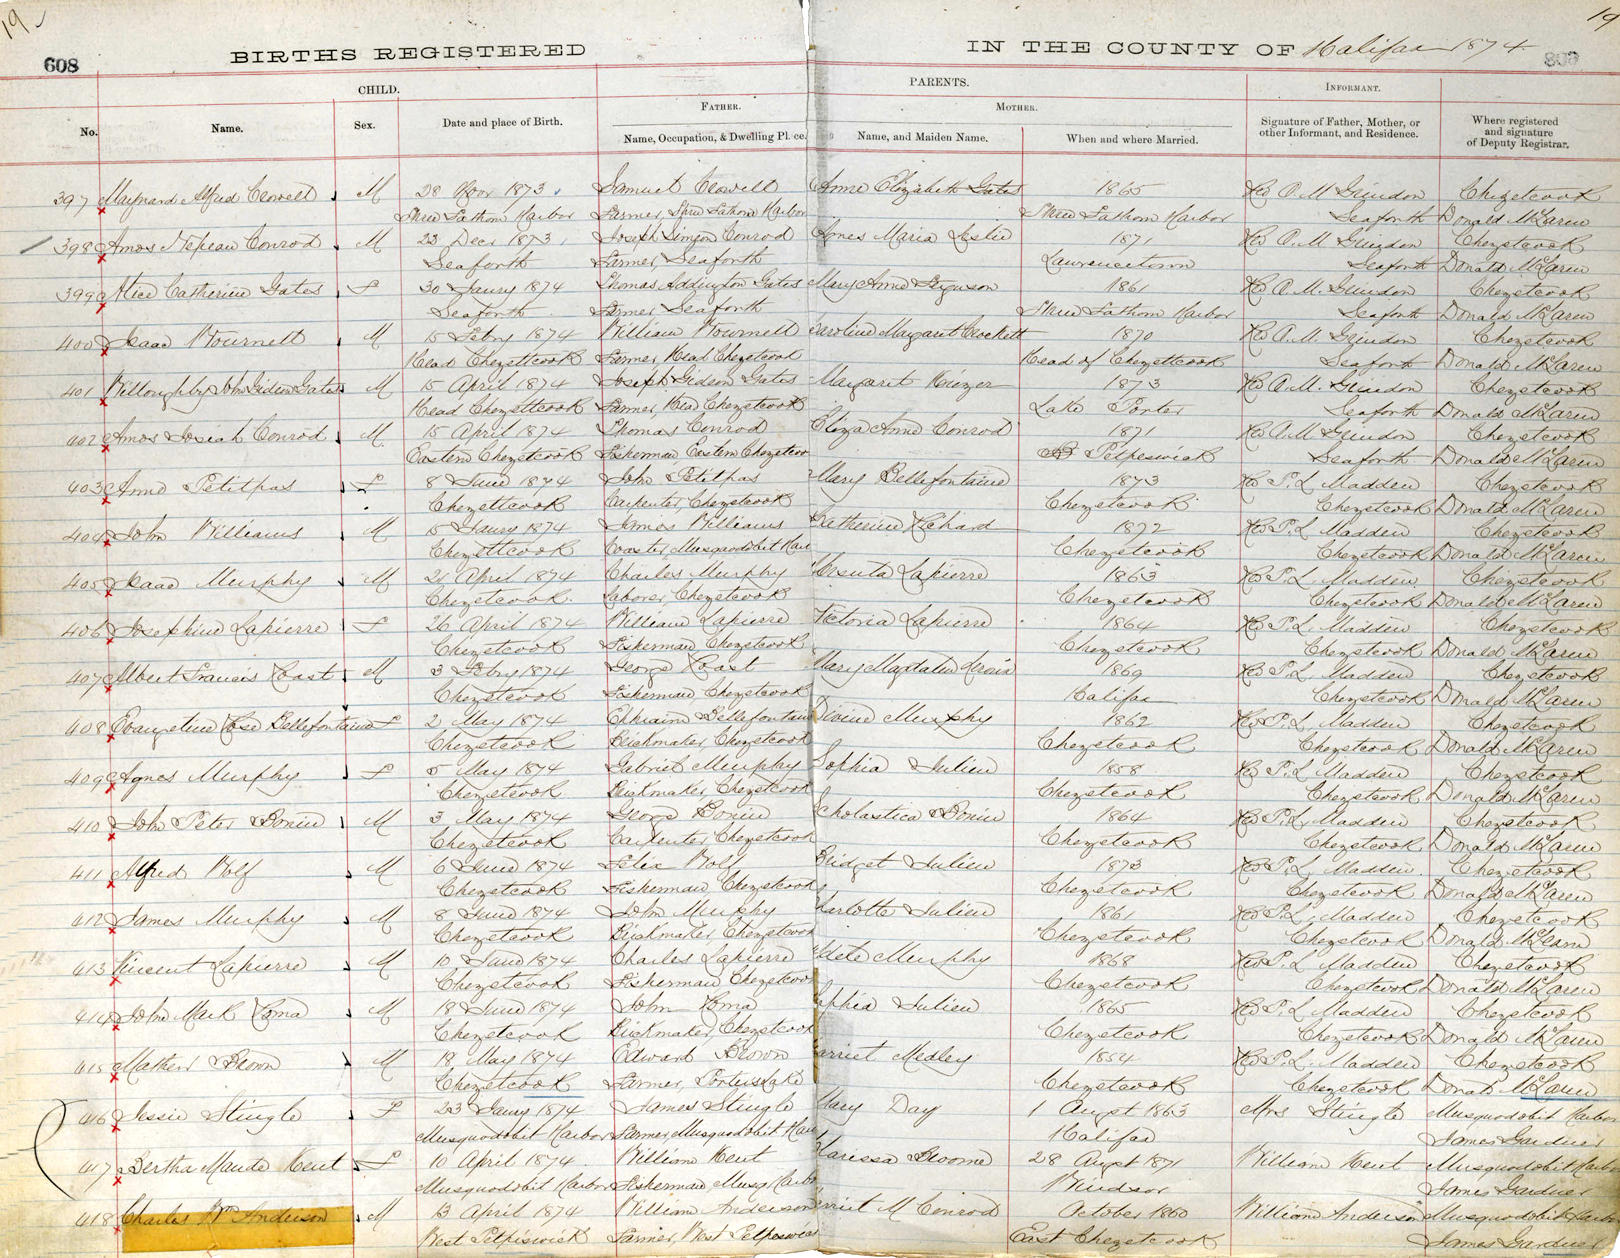 19
19
608
BIRTHS REGISTERED IN THE COUNTY OF Halifax 1874
CHILD. PARENTS. INFORMANT.
FATHER. MOTHER.
No. Name. Sex. Date and place of Birth. Name, Occupation, & Dwelling Pl ce. Name, and Maiden Name. When and where Married. Signature of Father, Mother, or other Informant, and Residence. Where registered and signature of Deputy Registrar.
397 Maynard Alfred Crowell M 28 Novr 1873 Samuel Crowell Anne Elizabeth Gates 1865 Revd A M Chezetcook
Three Fathom Harbor Farmer, Three Fathom Harbor Three Fathom Harbor Seaforth Donald McLaren
398 Amos Conrod M 23 Decr 1873 Joseph Simeon Conrod Agnes Maria Leslie 1871 Revd A. M Chezetcook
Seaforth Farmer, Seaforth Lawrencetown Seaforth Donald McLaren
399 Alice Catherine Gates F 30 Jany 1874 Thomas Addington Gates Mary Anne Ferguson 1861 Revd A. M. Chezetcook
Seaforth Farmer Seaforth Three Fathom Harbor Seaforth Donald McLaren
400 Isaac M 15 Feby 1874 William Caroline Margaret Crockett 1870 Revd A. M. Chezetcook
Head Chezettcook Farmer, Head Chezetcook Head of Chezettcook Seaforth Donald McLaren
401 Willoughby John Gideon Gates M 15 April 1874 Joseph Gideon Gates Margaret 1873 Revd A. M. Chezetcook
Head Chezettcook Farmer, Head Chezetcook Lake Porter Seaforth Donald McLaren
402 Amos Josiah Conrod M 15 April 1874 Thomas Conrod Eliza Anne Conrod 1871 Revd A. M. Chezetcook
Eastern Chezetcook Fisherman Eastern Chezetcoo Petpeswick Seaforth Donald McLaren
403 Anne Petitpas F 8 June 1874 John Petitpas Mary Bellefontaine 1873 Revd P. L. Madden Chezetcook
Chezettcook Carpenter, Chezetcook Chezetcook Chezetcook Donald McLaren
404 John Williams M 5 Jany 1874 James Williams Catherine Richard 1872 Revd P. L. Madden Chezetcook
Chezettcook Coaster, Musquodobit Har Chezetcook Chezetcook Donald McLaren
405 Isaac Murphy M 21 April 1874 Charles Murphy Ursula Lapierre 1863 Revd P. L. Madden Chezetcook
Chezetcook Laborer, Chezetcook Chezetcook Chezetcook Donald McLaren
406 Josephine Lapierre F 26 April 1874 William Lapierre Victoria Lapierre 1864 Revd P. L. Madden Chezetcook
Chezetcook Fisherman Chezetcook Chezetcook Chezetcook Donald McLaren
407 Albert Francis Roast M 3 Feby 1874 George Roast Mary Magdalen 1869 Revd P. L. Madden Chezetcook
Chezetcook Fisherman Chezetcook Halifax Chezetcook Donald McLaren
408 Evangeline Rose Bellefontaine F 2 May 1874 Ephraim Bellefontaine Divine Murphy 1862 Revd P. L. Madden Chezetcook
Chezetcook Brickmaker, Chezetcook Chezetcook Chezetcook Donald McLaren
409 Agnes Murphy F 5 May 1874 Gabriel Murphy Sophia Julien 1858 Revd P. L. Madden Chezetcook
Chezetcook Brickmaker Chezetcook Chezetcook Chezetcook Donald McLaren
410 John Peter Bonin M 3 May 1874 George Bonin Scholastica Bonin 1864 Revd P. L. Madden Chezetcook
Chezetcook Carpenter Chezetcook Chezetcook Chezetcook Donald McLaren
411 Alfred Wolf M 6 June 1874 Felix Wolf Bridget Julien 1873 Revd P. L. Madden Chezetcook
Chezetcook Fisherman Chezetcook Chezetcook Chezetcook Donald McLaren
412 James Murphy M 8 June 1874 John Murphy Charlotte Julien 1861 Revd P. L. Madden Chezetcook
Chezetcook Brickmaker, Chezetcook Chezetcook Chezetcook Donald McLaren
413 Vincent Lapierre M 10 June 1874 Charles Lapierre Adele Murphy 1868 Revd P. L. Madden Chezetcook
Chezetcook Fisherman Chezetcook Chezetcook Chezetcook Donald McLaren
414 John Mark Roma M 18 June 1874 John Roma Sophia Julien 1865 Revd P. L. Madden Chezetcook
Chezetcook Brickmaker, Chezetcook Chezetcook Chezetcook Donald McLaren
415 Mathew Brown M 18 May 1874 Edward Brown Harriet Medley 1854 Revd P. L. Madden Chezetcook
Chezetcook Farmer, Porters Lake Chezetcook Chezetcook Donald McLaren
416 Jessie Stingle F 23 Jany 1874 James Stingle Mary Day 1 Augst 1863 Mrs Stingle Musquodobit Harbor
Musquodobit Harbor Farmer, Musquodobit Har Halifax James Gardner
417 Bertha Maude Kent F 10 April 1874 William Kent Clarissa Broome 28 Augst 1871 William Kent Musquodobit Harbor
Musquodobit Harbor Fisherman, Musq Harbor Windsor James Gardner
418 Charles Wm Anderson M 13 April 1874 William Anderson Harriet M Conrod October 1860 William Anderson Musquodobit Harbor
West Petpiswick Farmer, West Petpeswick East Chezetcook James Gardner